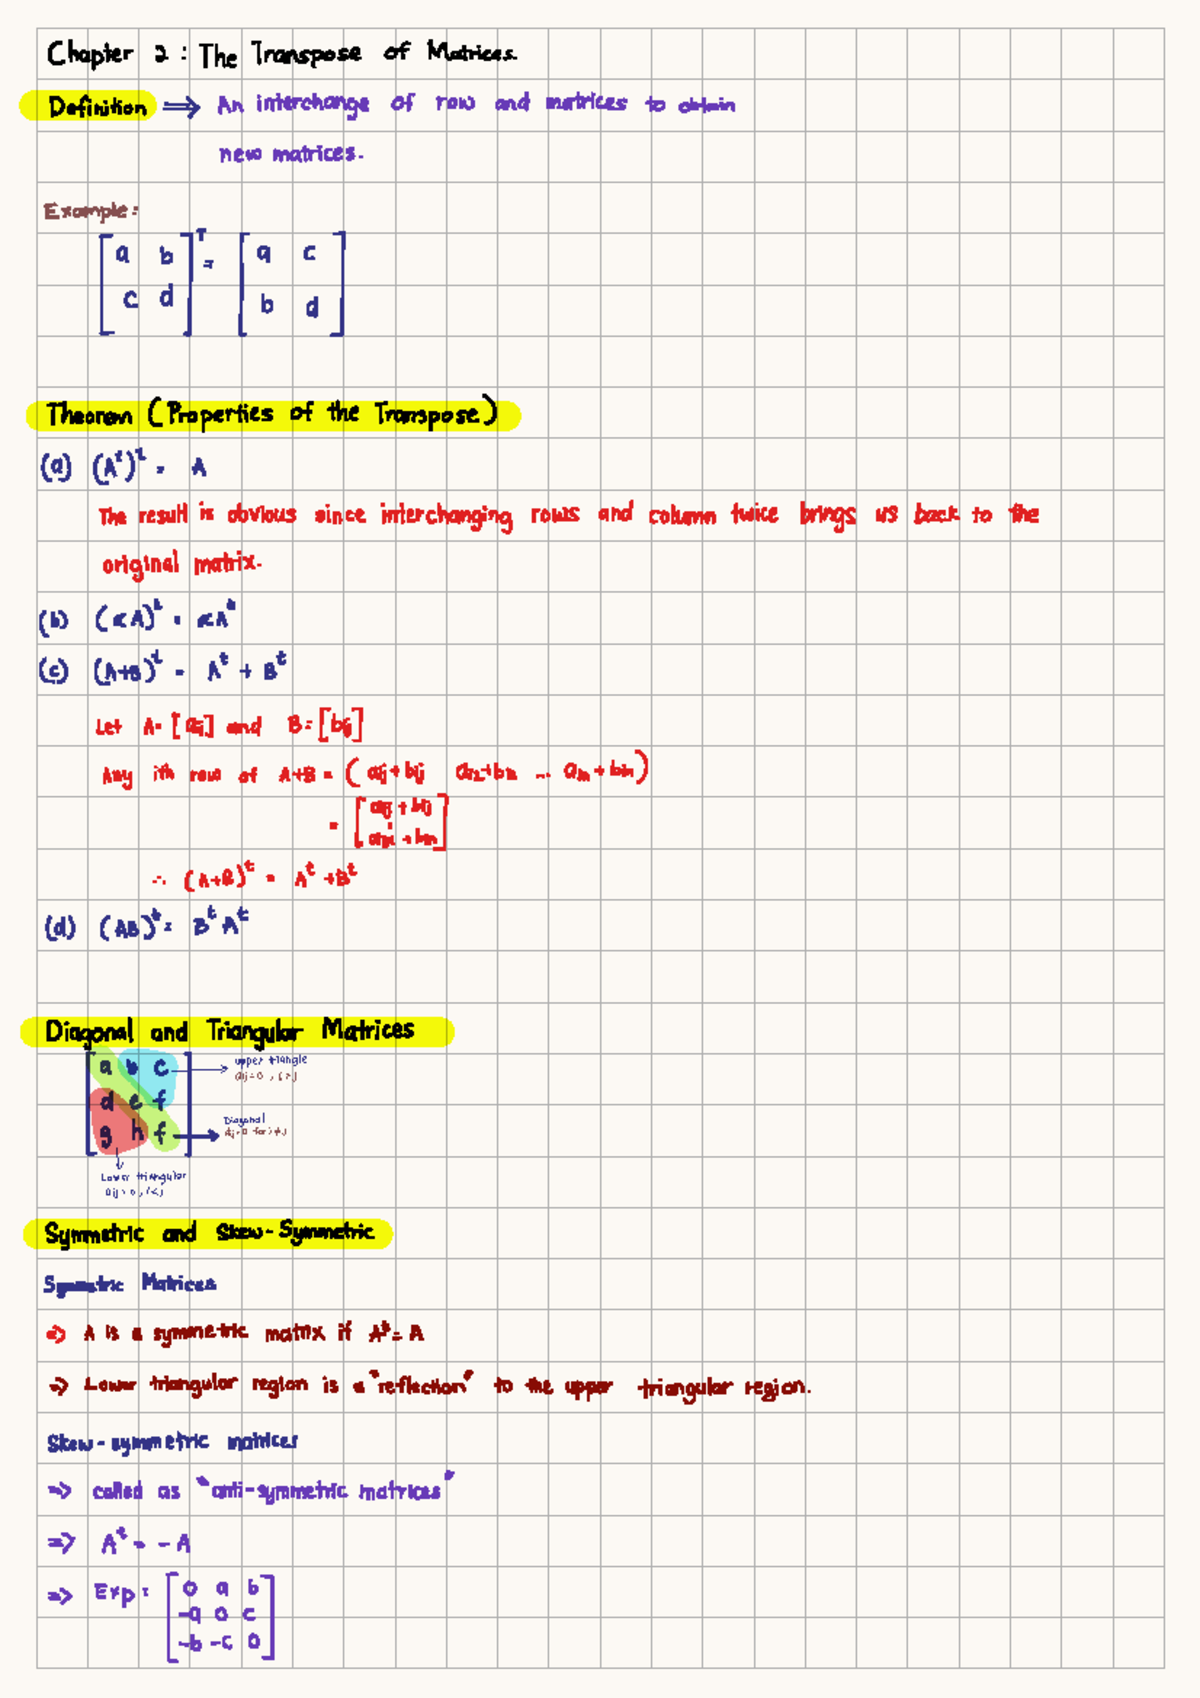 Chapter 2 : The Transpose of Matrices.
Definition ⟹ An interchange of row and matrices to obtain
new matrices.
Example:
[a b; c d]ᵀ = [a c; b d]
Theorem (Properties of the Transpose)
(a) (Aᵗ)ᵗ = A
The result is obvious since interchanging rows and column twice brings us back to the
original matrix.
(b) (αA)ᵗ = αAᵗ
(c) (A+B)ᵗ = Aᵗ + Bᵗ
Let A = [aij] and B = [bij]
Any ith row of A+B = (
∴ (A+B)ᵗ = Aᵗ + Bᵗ
(d) (AB)ᵗ = Bᵗ Aᵗ
Diagonal and Triangular Matrices
a b c
d e f
g h f
upper triangle
Diagonal
Lower triangular
Symmetric and Skew-Symmetric
Symmetric Matrices
⇒ A is a symmetric matrix if Aᵗ = A
⇒ Lower triangular region is a "reflection" to the upper triangular region.
Skew-symmetric matrices
⇒ called as "anti-symmetric matrices"
⇒ Aᵗ = -A
⇒ Exp: [0 a b
-a 0 c
-b -c 0]